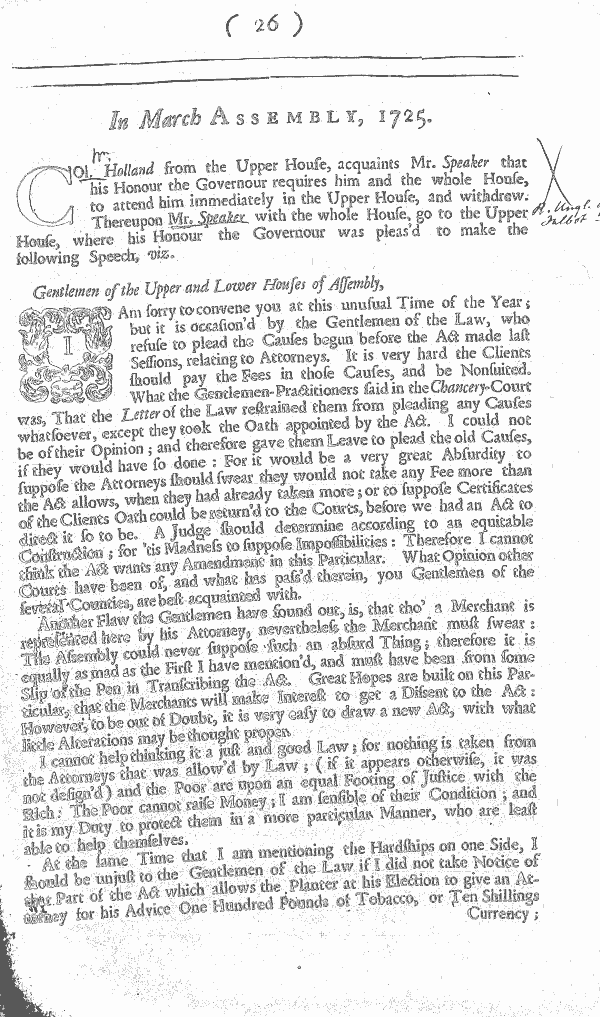 ( 26 )
In March ASSEMBLY, 1725.
COl. Holland from the Upper Houſe, acquaints Mr. Speaker that
his Honour the Governour requires him and the whole Houſe,
to attend him immediately in the Upper Houſe, and withdrew.
Thereupon Mr. Speaker with the whole Houſe, go to the Upper
Houſe, where his Honour the Governour was pleas'd to make the
following Speech, viz.
Gentlemen of the Upper and Lower Houſes of Aſſembly,
I Am ſorry to convene you at this unuſual Time of the Year;
but it is occaſion'd by the Gentlemen of the Law, who
refuſe to plead the Cauſes begun before the Act made laſt
Seſſions, relating to Attorneys. It is very hard the Clients
ſhould pay the Fees in thoſe Cauſes, and be Nonſuited.
What the Gentlemen-Practitioners ſaid in the Chancery-Court
was, That the Letter of the Law reſtrained them from pleading any Cauſes
whatſoever, except they took the Oath appointed by the Act. I could not
be of their Opinion; and therefore gave them Leave to plead the old Cauſes,
if they would have ſo done: For it would be a very great Abſurdity to
ſuppoſe the Attorneys ſhould ſwear they would not take any Fee more than
the Act allows, when they had already taken more; or to ſuppoſe Certificates
of the Clients Oath could be return'd to the Courts, before we had an Act to
direct it ſo to be. A Judge ſhould determine according to an equitable
Conſtruction; for 'tis Madneſs to ſuppoſe Impoſſibilities: Therefore I cannot
think the Act wants any Amendment in this Particular. What Opinion other
Courts have been of, and what has paſs'd therein, you Gentlemen of the
ſeveral Counties, are beſt acquainted with.
Another Flaw the Gentlemen have found out, is, that tho' a Merchant is
repreſented here by his Attorney, nevertheleſs the Merchant muſt ſwear:
The Aſſembly could never ſuppoſe ſuch an abſurd Thing; therefore it is
equally as mad as the Firſt I have mention'd, and muſt have been from ſome
Slip of the Pen in Tranſcribing the Act. Great Hopes are built on this Par-
ticular, that the Merchants will make Intereſt to get a Diſſent to the Act:
However, to be out of Doubt, it is very eaſy to draw a new Act, with what
little Alterations may be thought proper.
I cannot help thinking it a juſt and good Law; for nothing is taken from
the Attorneys that was allow'd by Law; (if it appears otherwiſe, it was
not deſign'd) and the Poor are upon an equal Footing of Juſtice with the
Rich: The Poor cannot raiſe Money; I am ſenſible of their Condition; and
it is my Duty to protect them in a more particular Manner, who are leaſt
able to help themſelves.
At the ſame Time that I am mentioning the Hardſhips on one Side, I
ſhould be unjuſt to the Gentlemen of the Law if I did not take Notice of
that Part of the Act which allows the Planter at his Election to give an At-
torney for his Advice One Hundred Pounds of Tobacco, or Ten Shillings
Currency;